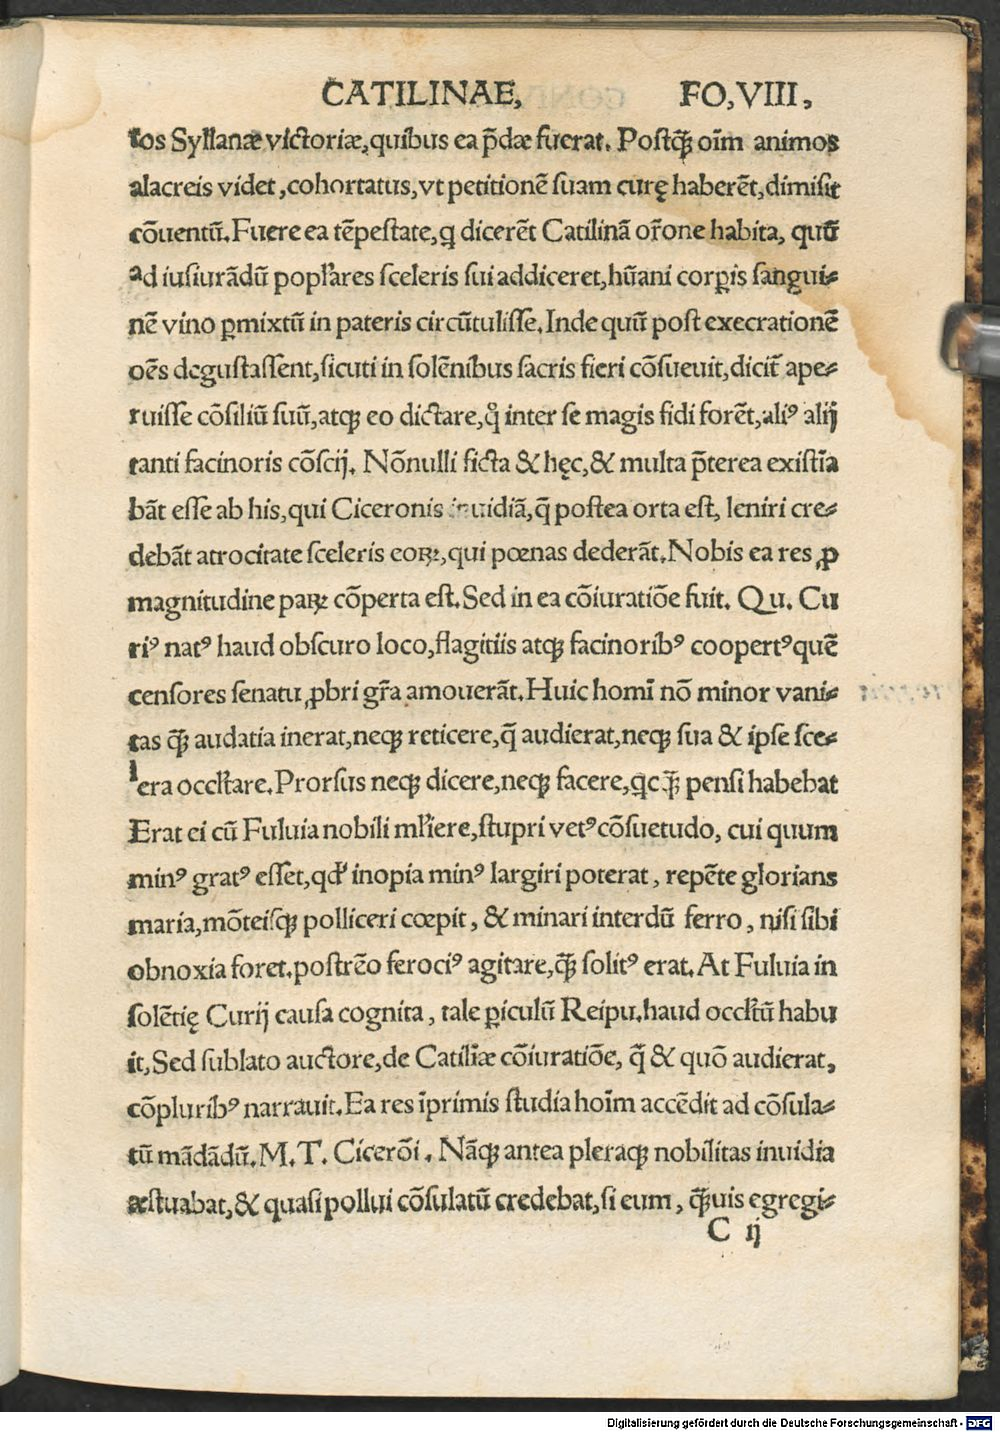 CATILINAE, FO, VIII,
tos Syllanæ victoriæ, quibus ea p̄dæ fuerat. Postq̄ȝ oīm animos
alacreis videt, cohortatus, vt petitionē suam curę haberēt, dimisit
cōuentū. Fuere ea tēpestate, q dicerēt Catilinā or̄one habita, quū
ad iusiurādū popl̄ares sceleris sui addiceret, hūani corꝑis sangui⸗
nē vino ꝑmixtū in pateris circūtulisse. Inde quū post execrationē
oēs degustassent, sicuti in solēnibus sacris fieri cōsueuit, dicit̄ ape⸗
ruisse cōsiliū suū, atqȝ eo dictare, q̊ inter se magis fidi forēt, aliꝰ alij
tanti facinoris cōscij. Nōnulli ficta & hęc, & multa p̄terea existīa
bāt esse ab his, qui Ciceronis inuidiā, q̄ postea orta est, leniri cre⸗
debāt atrocitate sceleris eoꝝ, qui pœnas dederāt. Nobis ea res ꝓ
magnitudine paꝝ cōperta est. Sed in ea cōiuratiōe fuit. Qu. Cu
riꝰ natꝰ haud obscuro loco, flagitiis atqȝ facinoribꝰ coopertꝰ quē
censores senatu ꝓbri gr̄a amouerāt. Huic homī nō minor vani⸗
tas q̄ȝ audatia inerat, neqȝ reticere, q̄ audierat, neqȝ sua & ipse sce⸗
lera occl̄tare. Prorsus neqȝ dicere, neqȝ facere, qc q̄ȝ pensi habebat
Erat ei cū Fuluia nobili ml̄iere, stupri vetꝰ cōsuetudo, cui quum
minꝰ gratꝰ esset, qd̄ inopia minꝰ largiri poterat, repēte glorians
maria, mōteisqȝ polliceri cœpit, & minari interdū ferro, nisi sibi
obnoxia foret. postrēo ferociꝰ agitare, q̄ȝ solitꝰ erat. At Fuluia in
solētię Curij causa cognita, tale ꝑiculū Reipu. haud occl̄tū habu
it, Sed sublato auctore, de Catilīæ cōiuratiōe, q̄ & quō audierat,
cōpluribꝰ narrauit. Ea res īprimis studia hoīm accēdit ad cōsula⸗
tū mādādū. M. T. Cicerōi. Nāqȝ antea pleraqȝ nobilitas inuidia
æstuabat, & quasi pollui cōsulatū credebat, si eum, q̄ȝuis egregi⸗
C ij
Digitalisierung gefördert durch die Deutsche Forschungsgemeinschaft - DFG